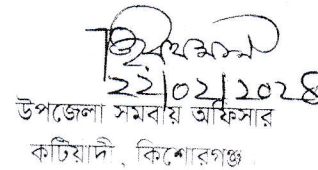 ২২/০২/২০২৪
উপজেলা সমবায় অফিসার
কটিয়াদী, কিশোরগঞ্জ